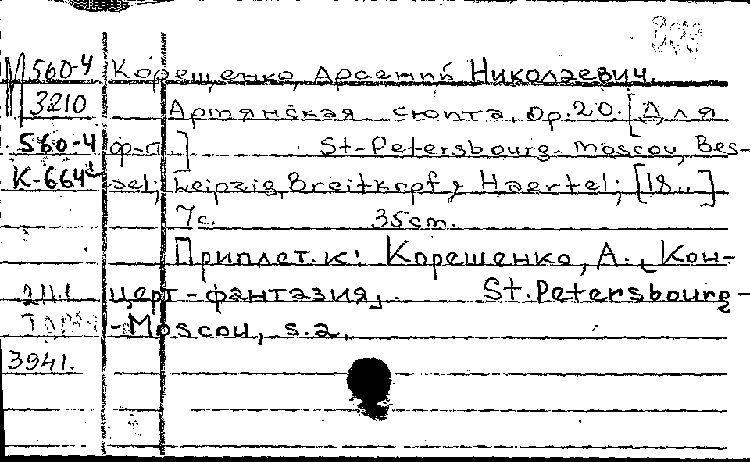 560-4 Корещенко, Арсений Николаевич.
3210 Армянская сюита, Op. 20. [Для
560-4 ф-п.] St-Petersbourg-Moscou, Bes-
К-664 sel; Leipzig, Breitkopf & Haertel; [18..]
7с. 35cm.
Приплет. к: Корещенко, А., Кон-
церт-фантазия, St. Petersbourg-
-Moscou, s.a.
3941.